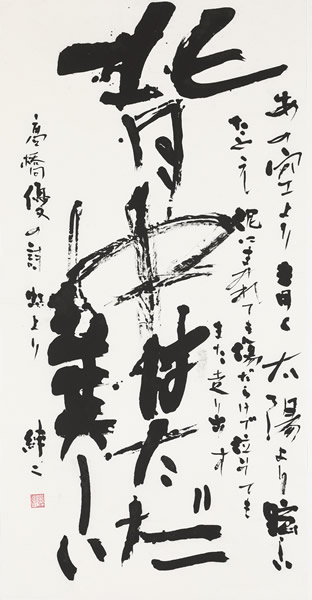 あの空より青く太陽より眩しい
たとえ
泥にまみれても傷だらけで泣いても
また走り出す
背中
はただ
美しい
高橋優の詩 虹より